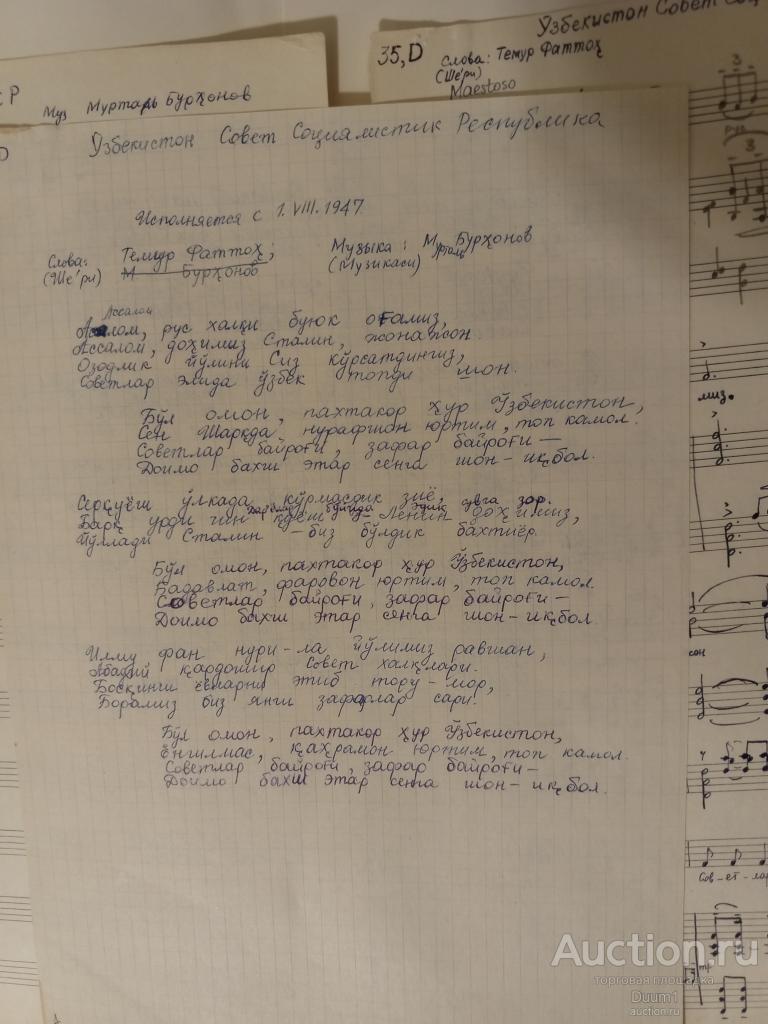 Муз Муртарь Бурҳонов
35, D
Ўзбекистон Совет Соц
Слова: Темур Фаттоҳ
(Ше'ри)
Maestoso
Ўзбекистон Совет Социалистик Республика
Исполняется с 1.VIII.1947
Слова: Темур Фаттоҳ; Музыка: М Бурҳонов
(Ше'ри) М Бурҳонов (Музикаси)
Ассалом
рус халқи буюк оғамиз,
Ассалом, доҳимиз Сталин, жонажон
Озодлик йўлини Сиз кўрсатдингиз,
Советлар элида ўзбек топди шон.
Бўл омон, пахтакор ҳур Ўзбекистон,
Сен Шарқда нурафшон юртим, топ камол.
Советлар байроғи, зафар байроғи—
Доимо бахш этар сенга шон-иқбол.
Серқуёш ўлкада кўрмасдик зиё,
бўйида эдик сувга зор.
Барқ урди Ленин доҳимиз,
Йўллади Сталин - биз бўлдик бахтиёр.
Бўл омон, пахтакор ҳур Ўзбекистон,
Бадавлат, фаровон юртим, топ камол.
Советлар байроғи, зафар байроғи—
Доимо бахш этар сенга шон-иқбол.
Илму фан нури-ла йўлимиз равшан,
Абадий қардошмиз Совет халқлари.
Босқинчи ёвларни этиб тору-мор,
Борамиз биз янги зафарлар сари.
Бўл омон, пахтакор ҳур Ўзбекистон,
Енгилмас, қаҳрамон юртим, топ камол.
Советлар байроғи, зафар байроғи—
Доимо бахш этар сенга шон-иқбол.
миз.
сон
Сов-ет-лар
mp
Auction.ru
торговая площадка
Duum1
auction.ru